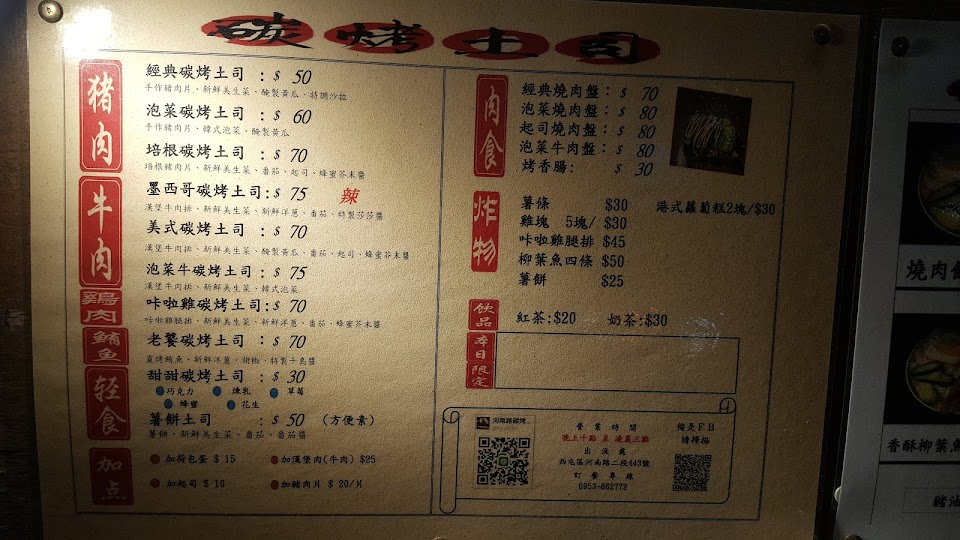 碳烤土司
猪肉
經典碳烤土司 : $ 50
手作豬肉片、新鮮美生菜、醃製黃瓜、特調沙拉
泡菜碳烤土司 : $ 60
手作豬肉片、韓式泡菜、醃製黃瓜
培根碳烤土司 : $ 70
培根豬肉片、新鮮美生菜、番茄、起司、蜂蜜芥末醬
牛肉
墨西哥碳烤土司:$ 75 辣
漢堡牛肉排、新鮮美生菜、新鮮洋蔥、番茄、特製莎莎醬
美式碳烤土司 : $ 70
漢堡牛肉排、新鮮美生菜、醃製黃瓜、番茄、起司、蜂蜜芥末醬
泡菜牛碳烤土司 : $ 75
漢堡牛肉排、新鮮美生菜、韓式泡菜
鷄肉
咔啦雞碳烤土司:$ 70
咔啦雞腿排、新鮮美生菜、新鮮洋蔥、番茄、蜂蜜芥末醬
鮪魚
老饕碳烤土司 : $ 70
直烤鮪魚、新鮮洋蔥、胡椒、特製千島醬
轻食
甜甜碳烤土司 : $ 30
巧克力 煉乳 草莓
蜂蜜 花生
薯餅土司 : $ 50 (方便素)
薯餅、新鮮美生菜、番茄、番茄醬
加点
加荷包蛋 $ 15 加漢堡肉(牛肉) $25
加起司 $ 10 加豬肉片 $ 20/片
肉食
經典燒肉盤: $ 70
泡菜燒肉盤: $ 80
起司燒肉盤: $ 80
泡菜牛肉盤: $ 80
烤香腸: $ 30
炸物
薯條 $30 港式蘿蔔糕2塊/$30
雞塊 5塊/ $30
咔啦雞腿排 $45
柳葉魚四條 $50
薯餅 $25
飲品
紅茶:$20 奶茶:$30
本日限定
河南路碳烤
營業時間
晚上十點 至 凌晨三點
出沒處
西屯區河南路二段443號
訂餐專線
0953-662772
俺是F.B
請掃描
燒肉
香酥柳葉魚
豬油